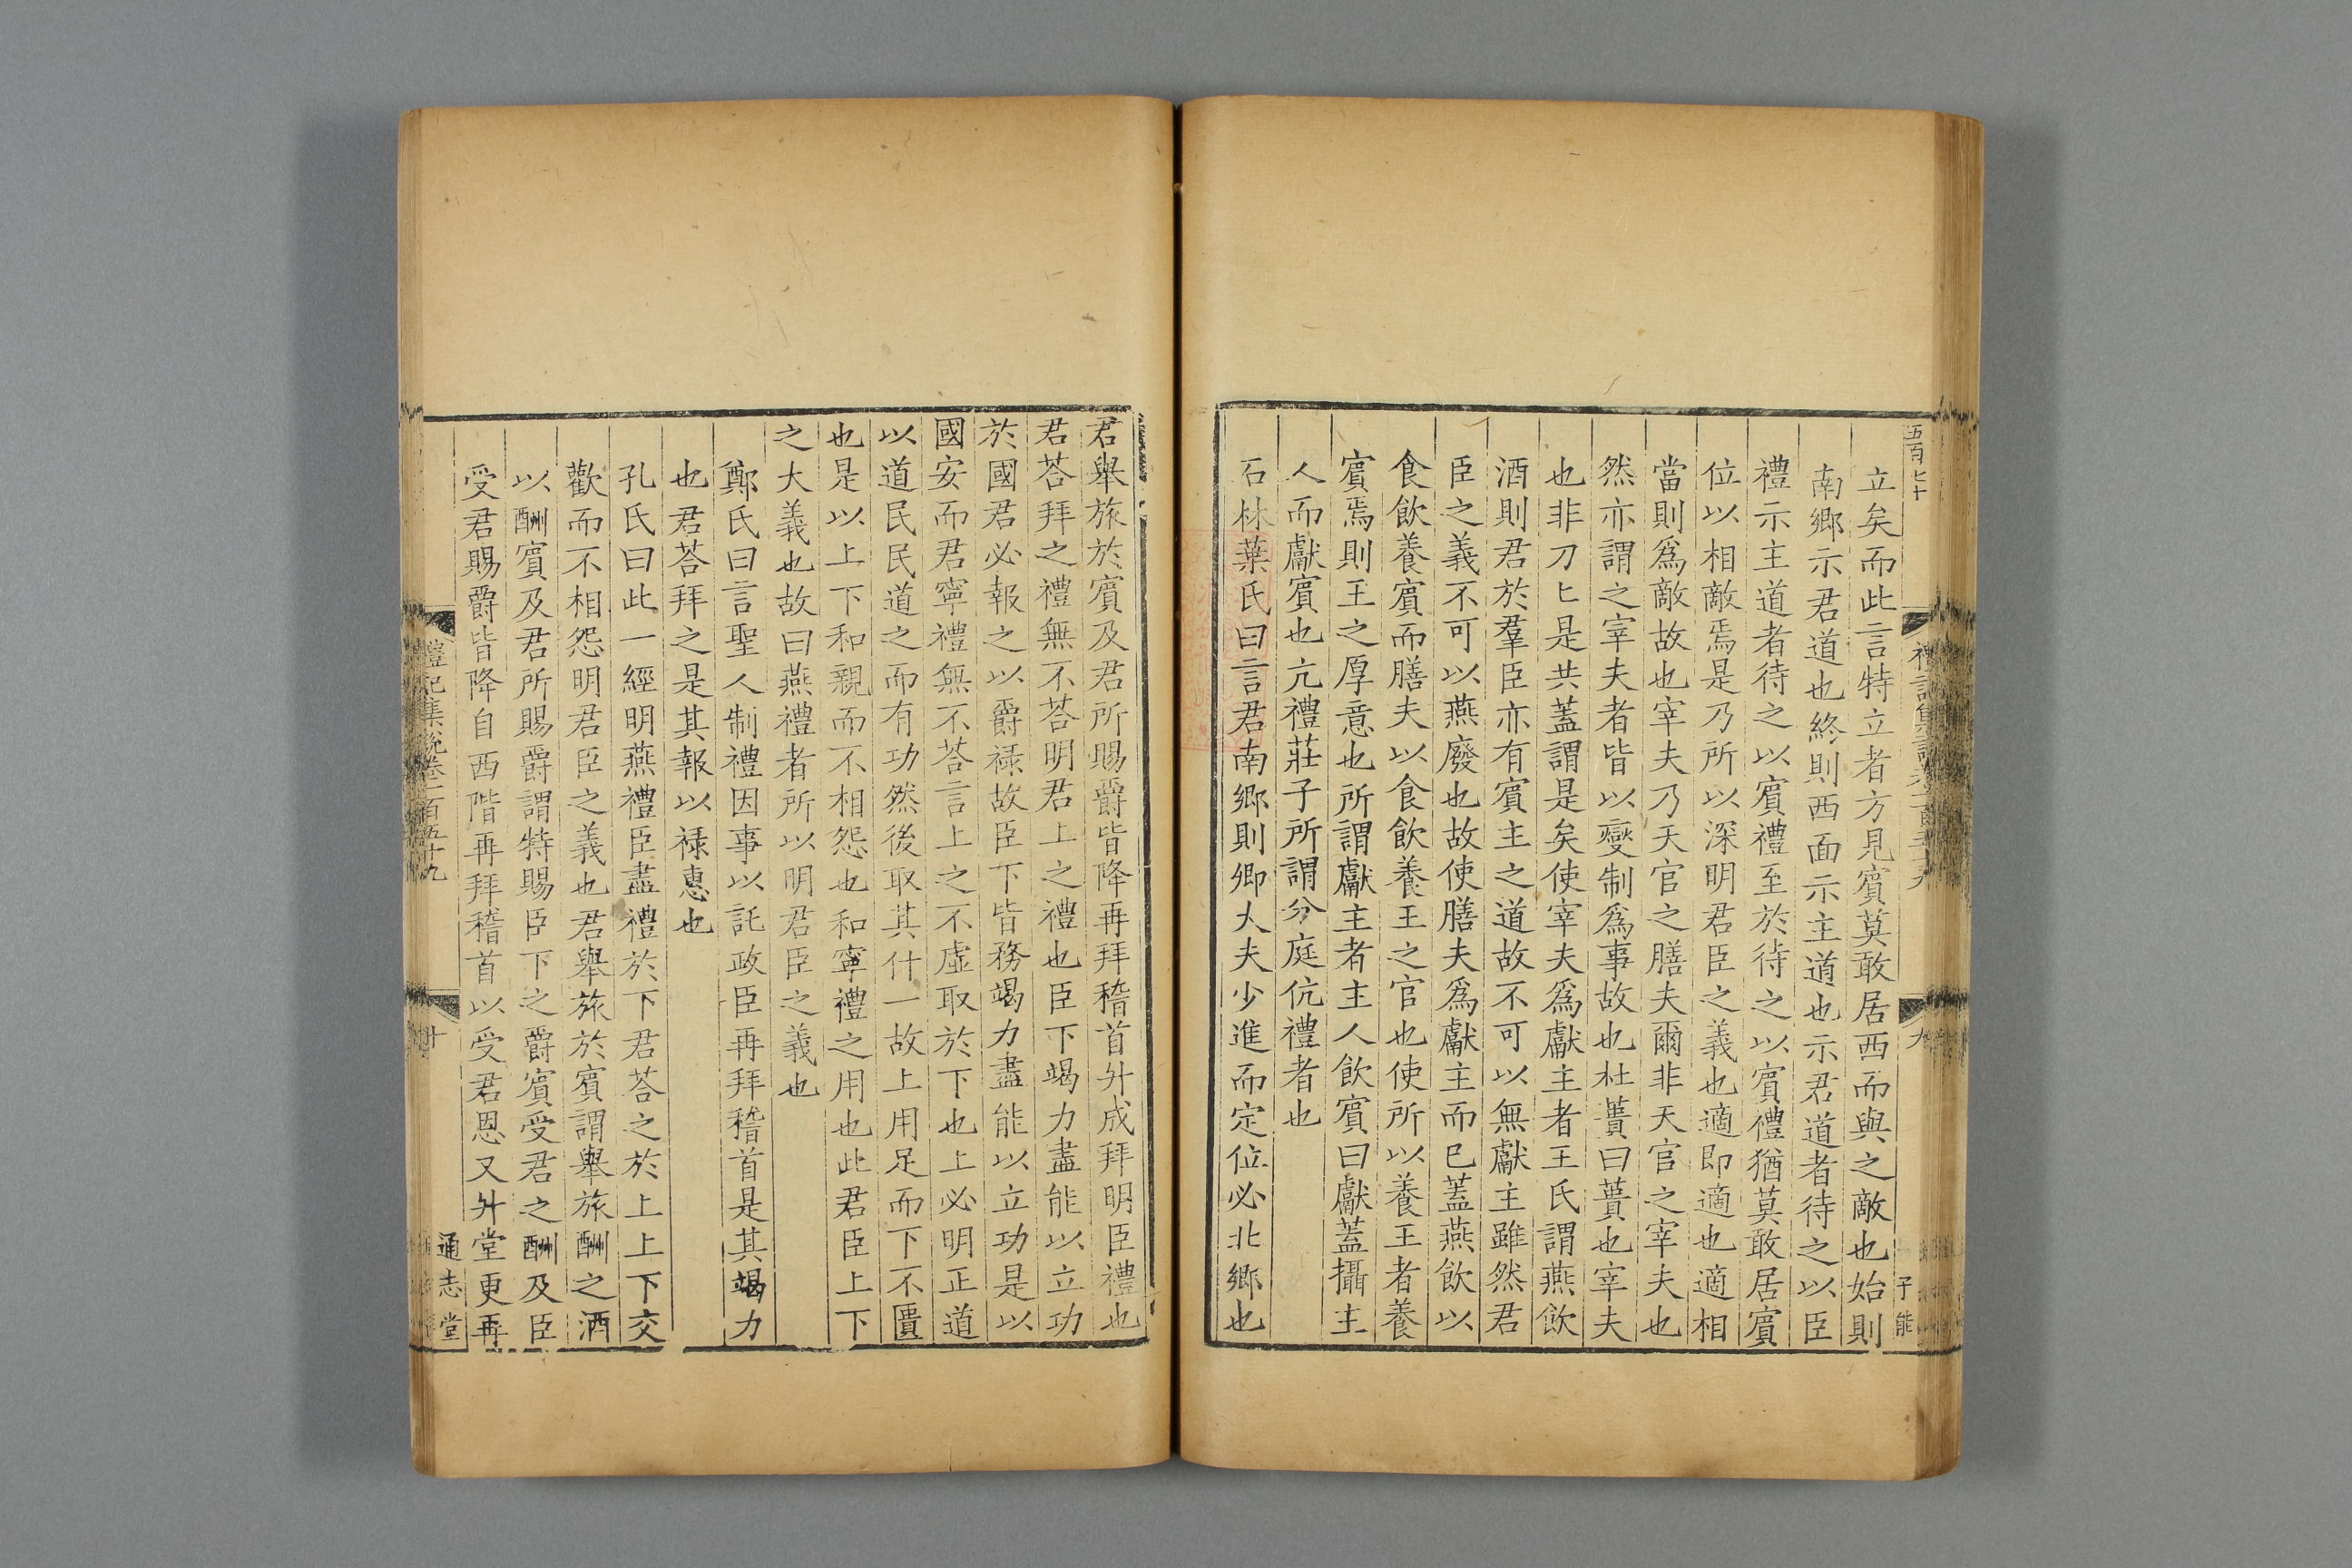 五百七十
立矣而此言特立者方見賔莫敢居西而與之敵也始則
南鄉示君道也終則西面示主道也示君道者待之以臣
禮示主道者待之以賔禮至於待之以賔禮猶莫敢居賔
位以相敵焉是乃所以深明君臣之義也適即適也適相
當則爲敵故也宰夫乃天官之膳夫爾非天官之宰夫也
然亦謂之宰夫者皆以變制爲事故也杜蕢曰蕢也宰夫
也非刀匕是共蓋謂是矣使宰夫爲獻主者王氏謂燕飲
酒則君於羣臣亦有賔主之道故不可以無獻主雖然君
臣之義不可以燕廢也故使膳夫爲獻主而已蓋燕飲以
食飲養賔而膳夫以食飲養王之官也使所以養王者養
賔焉則王之厚意也所謂獻主者主人飲賔曰獻蓋攝主
人而獻賔也亢禮莊子所謂分庭伉禮者也
石林葉氏曰言君南鄉則鄉大夫少進而定位必北鄉也
九
子能
君舉旅於賔及君所賜爵皆降再拜稽首升成拜明臣禮也
君荅拜之禮無不荅明君上之禮也臣下竭力盡能以立功
於國君必報之以爵禄故臣下皆務竭力盡能以立功是以
國安而君寧禮無不荅言上之不虛取於下也上必明正道
以道民民道之而有功然後取其什一故上用足而下不匱
也是以上下和親而不相怨也和寧禮之用也此君臣上下
之大義也故曰燕禮者所以明君臣之義也
鄭氏曰言聖人制禮因事以託政臣再拜稽首是其竭力
也君荅拜之是其報以禄惠也
孔氏曰此一經明燕禮臣盡禮於下君荅之於上上下交
歡而不相怨明君臣之義也君舉旅於賔謂舉旅酬之酒
以酬賔及君所賜爵謂特賜臣下之爵賔受君之酬及臣
受君賜爵皆降自西階再拜稽首以受君恩又升堂更再
禮記集說卷一百五十九
十
通志堂